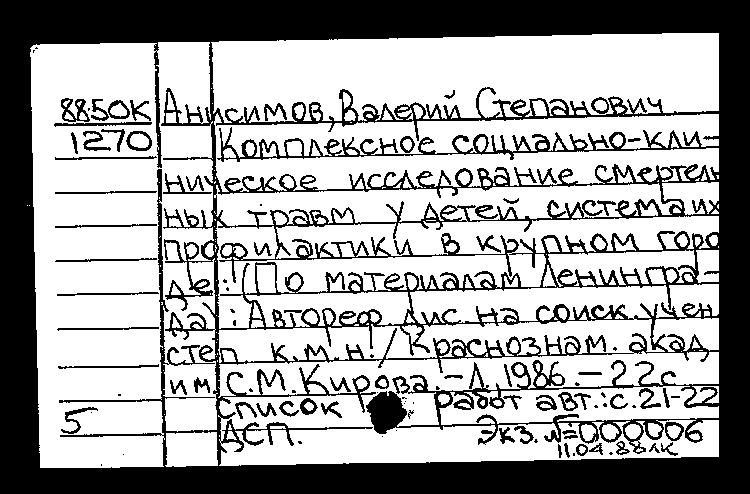 8850К Анисимов, Валерий Степанович
1270 Комплексное социально-кли-
ническое исследование смертель
ных травм у детей, система их
профилактики в крупном горо
де: (По материалам Ленингра-
да) : Автореф дис. на соиск. учен
степ к.м.н./ Краснознам. акад
им. С.М. Кирова. - Л, 1986. - 22с
список работ авт.: с. 21-22
5 ДСП. Экз. №=000006
11.04.88ЛК